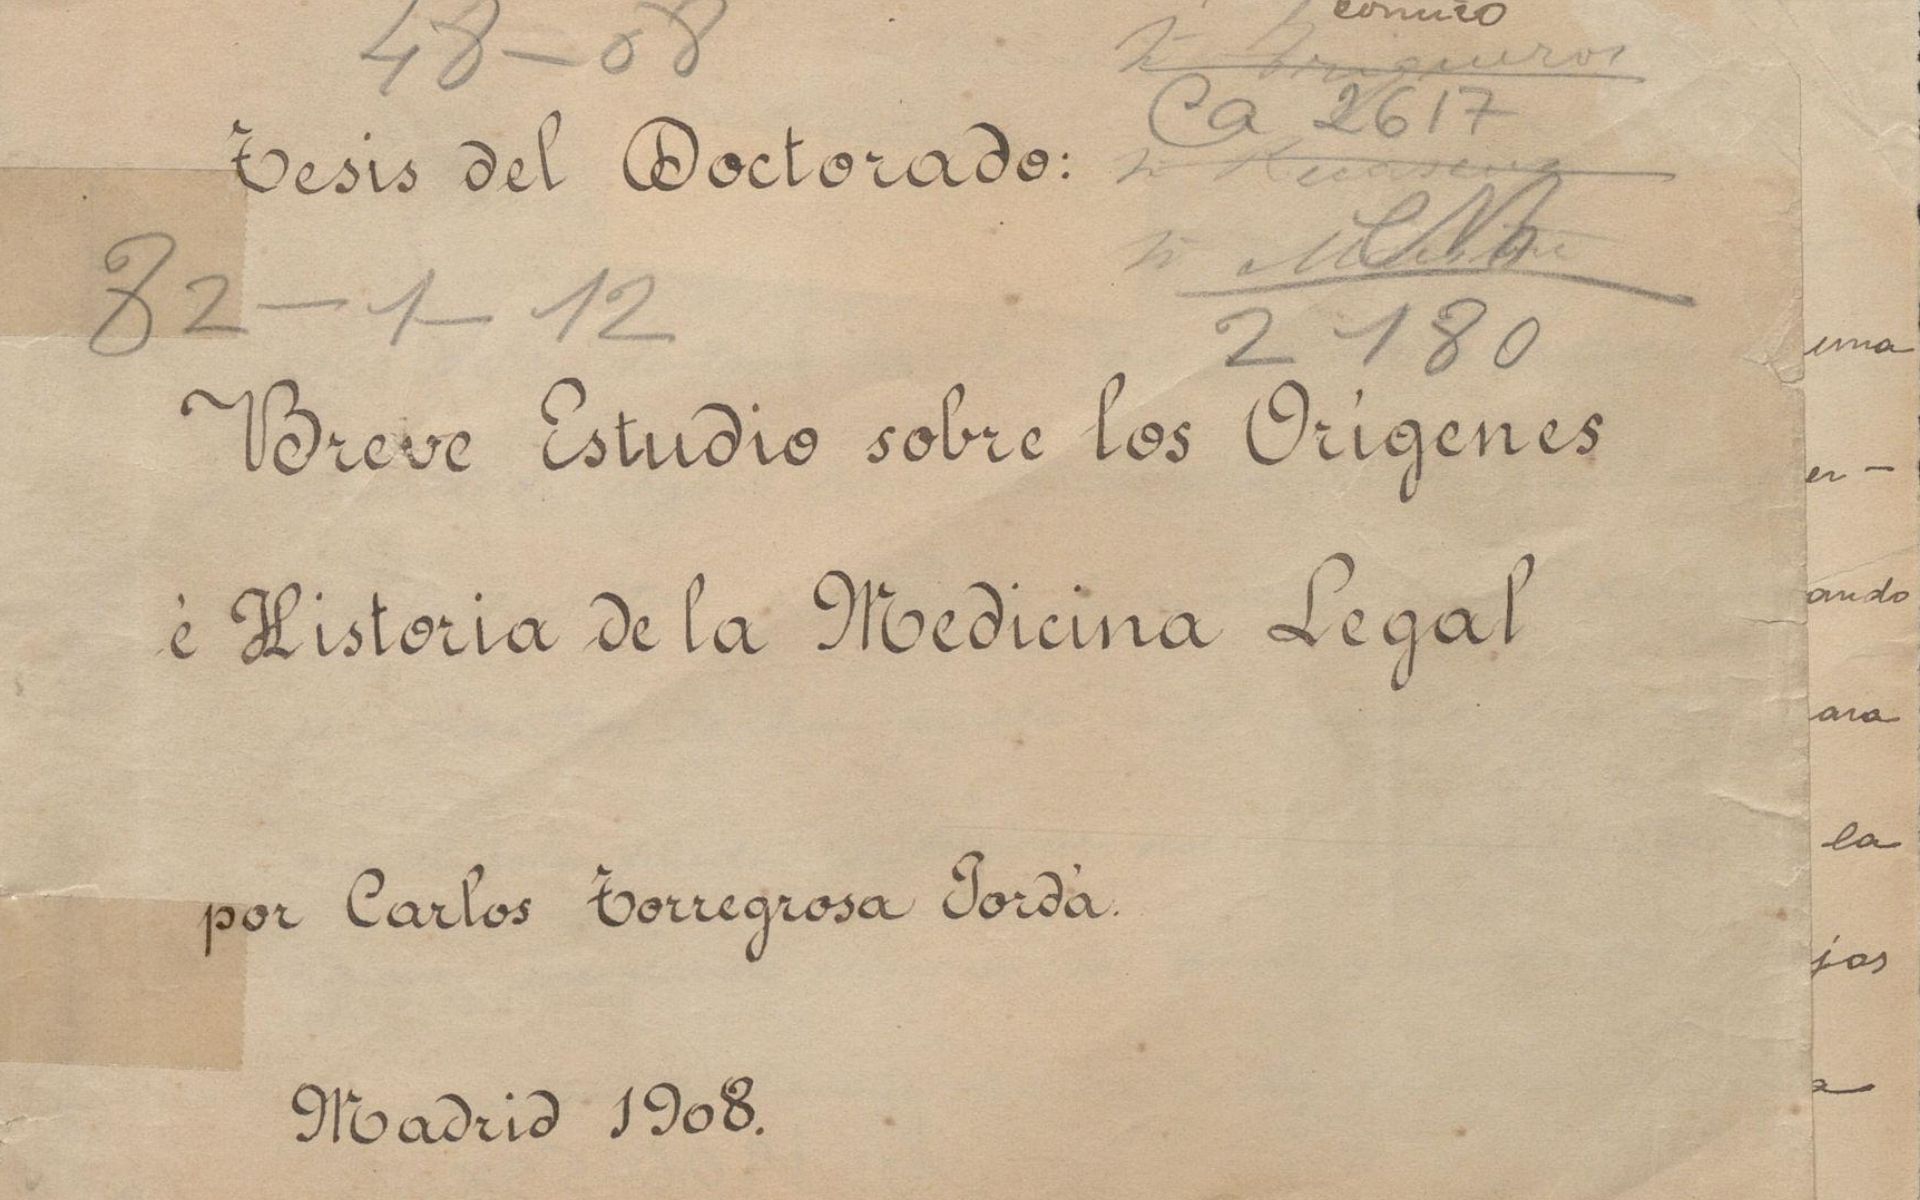 48-88
Ca 2617
Tesis del Doctorado:
82-1-12
2180
Breve Estudio sobre los Orígenes
é Historia de la Medicina Legal
por Carlos Torregrosa Jordá.
Madrid 1908.
una
er -
ando
ara
la
jas
a